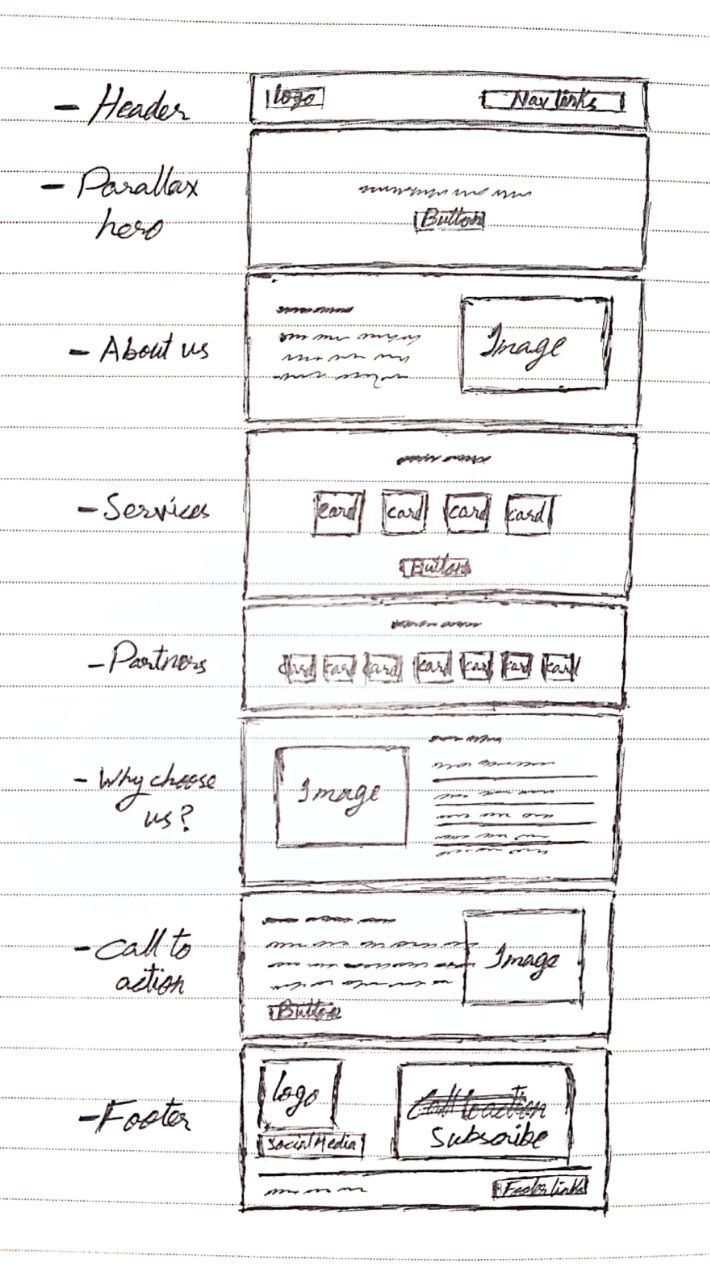 - Header
logo
Nav links
- Parallax
hero
Button
- About us
Image
- Services
card card card card
Button
- Partners
card card card card card card card
- Why choose
us?
Image
- Call to
action
Image
Button
- Footer
logo
Social Media
Call to action
Subscribe
Footer links